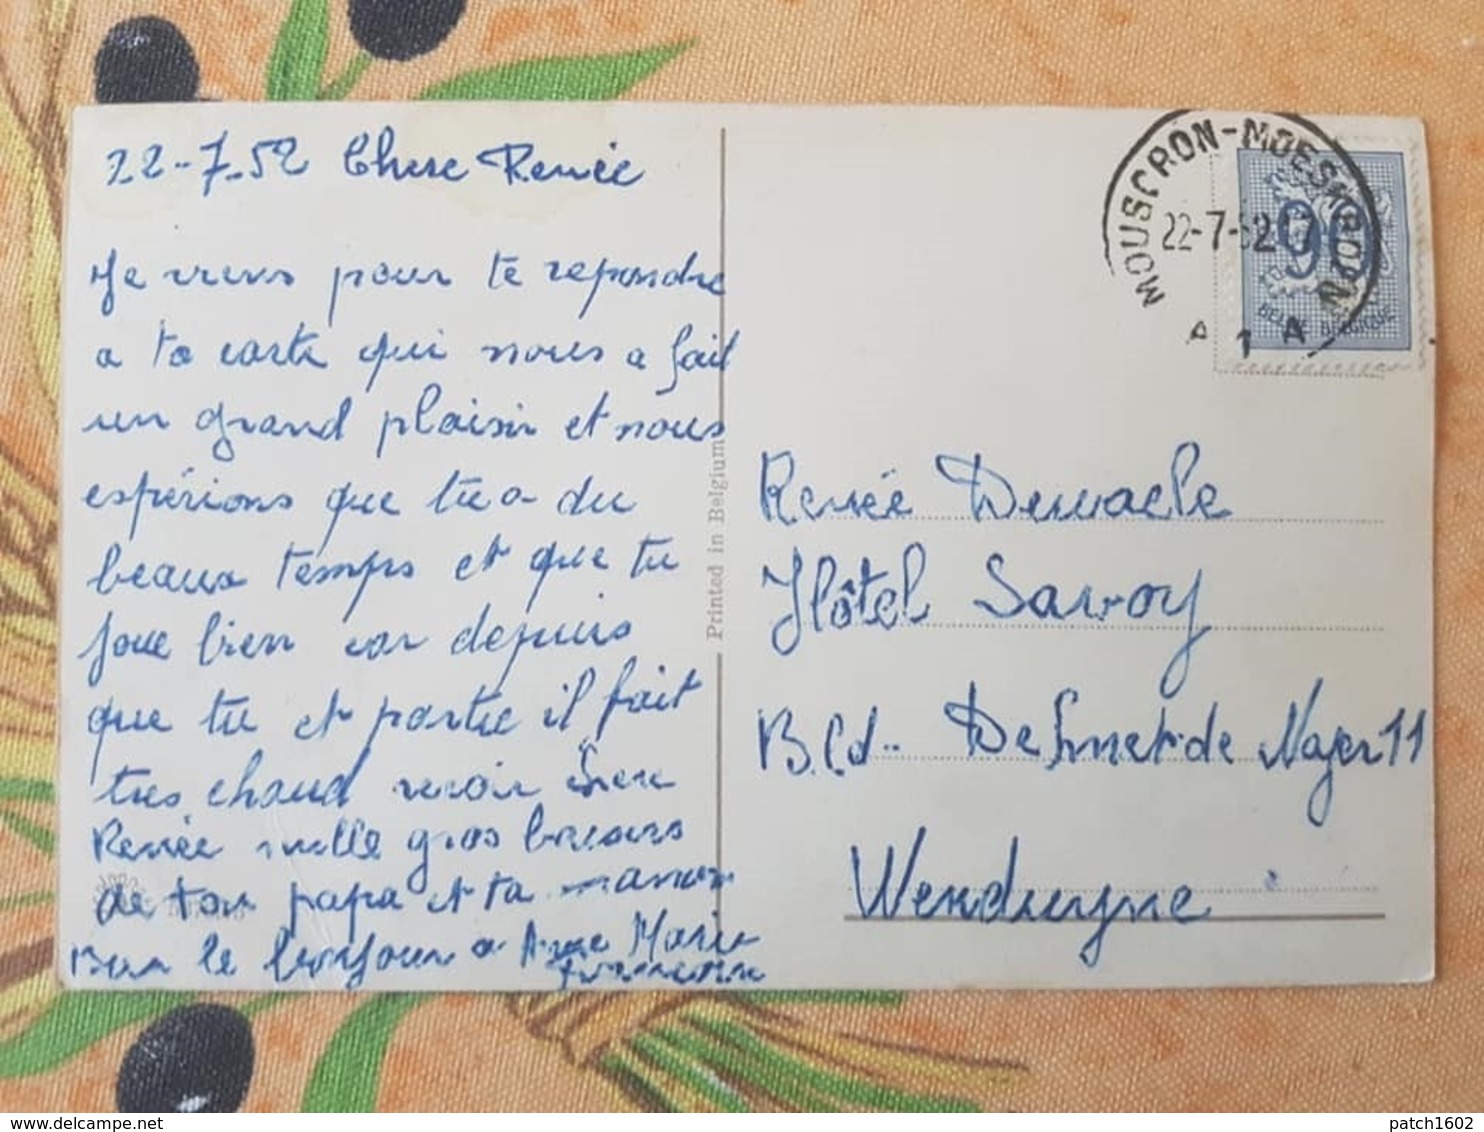 22-7-52 Chere Renée
Je viens pour te repondre
a ta carte qui nous a fait
un grand plaisir et nous
espérions que tu a du
beaux temps et que tu
joue bien car depuis
que tu et partie il fait
tres chaud
Renée mille gros
de ton papa et ta maman
le bonjour a Anne Marie
Printed in Belgium
MOUSCRON-MOESKROEN
22-7-52
A 1 A
90
BELGIE BELGIQUE
Renée Dewaele
Hôtel Savoy
B.ld.. De Smet-de Nayer 11
Wenduyne
patch1602